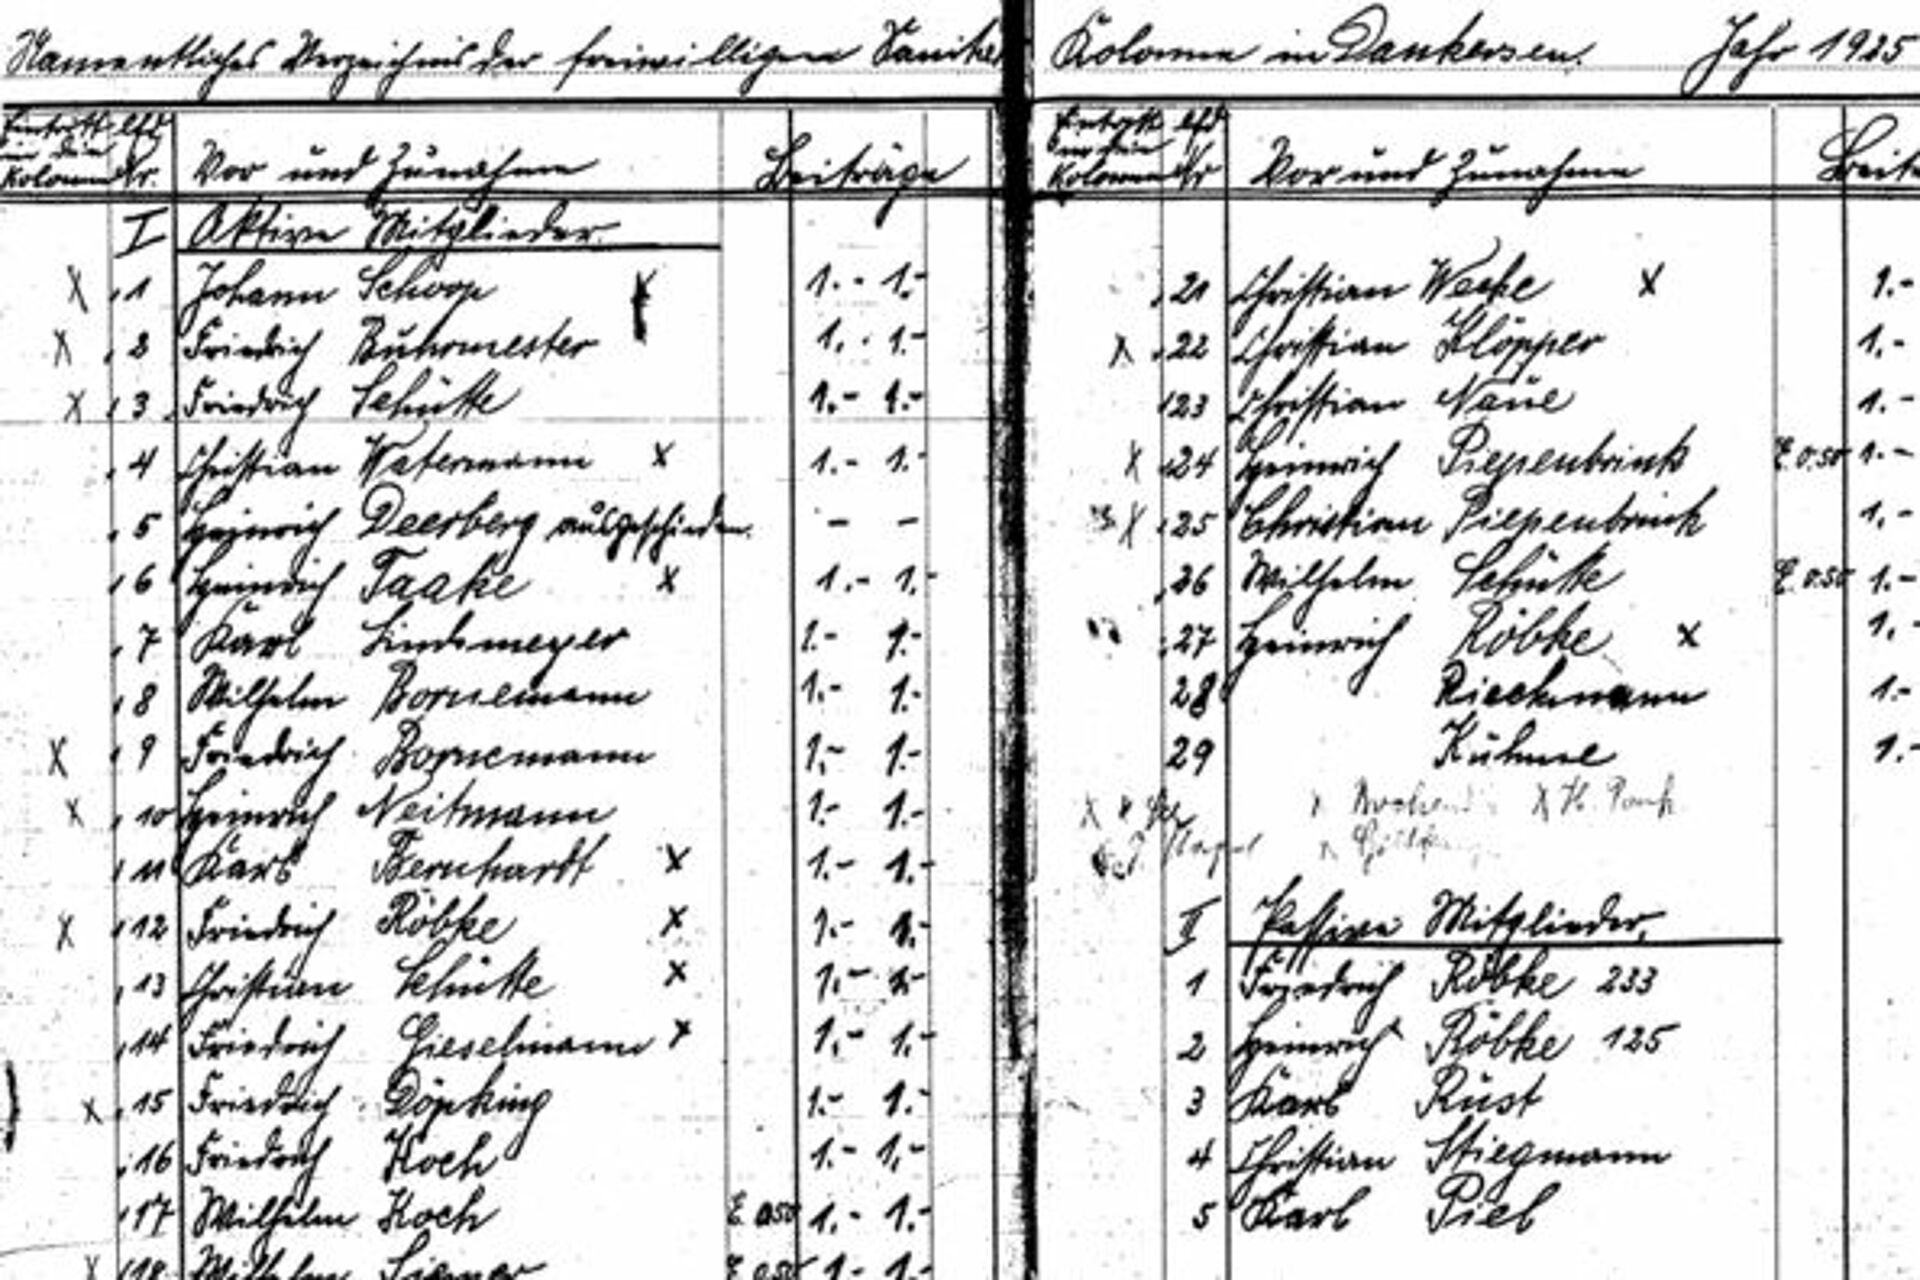 Namentliches Verzeichnis der freiwilligen Sanitäts
Eintritt in die Kolonne lfd Nr. Vor und Zunahme Beiträge
I Aktive Mitglieder
X 1 Johann Schoop x 1.- 1.-
X 2 Friedrich Buhrmester 1.- 1.-
X 3 Friedrich Schütte 1.- 1.-
4 Christian Watermann x 1.- 1.-
5 Heinrich Deerberg ausgeschieden. - -
6 Heinrich Taake x 1.- 1.-
7 Karl Lindemeyer 1.- 1.-
8 Wilhelm Bornemann 1.- 1.-
X 9 Friedrich Bornemann 1.- 1.-
X 10 Heinrich Neitmann 1.- 1.-
11 Karl Bernhardt x 1.- 1.-
X 12 Friedrich Röbke x 1.- 1.-
13 Christian Schütte x 1.- 1.-
14 Friedrich Gieselmann x 1.- 1.-
X 15 Friedrich Döpking 1.- 1.-
16 Friedrich Koch 1.- 1.-
17 Wilhelm Koch E. 0.50 1.- 1.-
X 18 Wilhelm E 0.50 1.- 1.-
Kolonne in Dankersen. Jahr 1925
Eintritt in die Kolonne lfd Nr Vor und Zunahme Beitr
21 Christian Weske x 1.-
X 22 Christian Klöpper 1.-
23 Christian Naue 1.-
X 24 Heinrich Piepenbrink E. 0.50 1.-
X 25 Christian Piepenbrink 1.-
26 Wilhelm Schütte E. 0.50 1.-
27 Heinrich Röbke x 1.-
28 Rieckmann 1.-
29 Kuhme 1.-
II Passive Mitglieder.
1 Friedrich Röbke 233
2 Heinrich Röbke 125
3 Karl Rust
4 Christian Stiegmann
5 Karl Piel